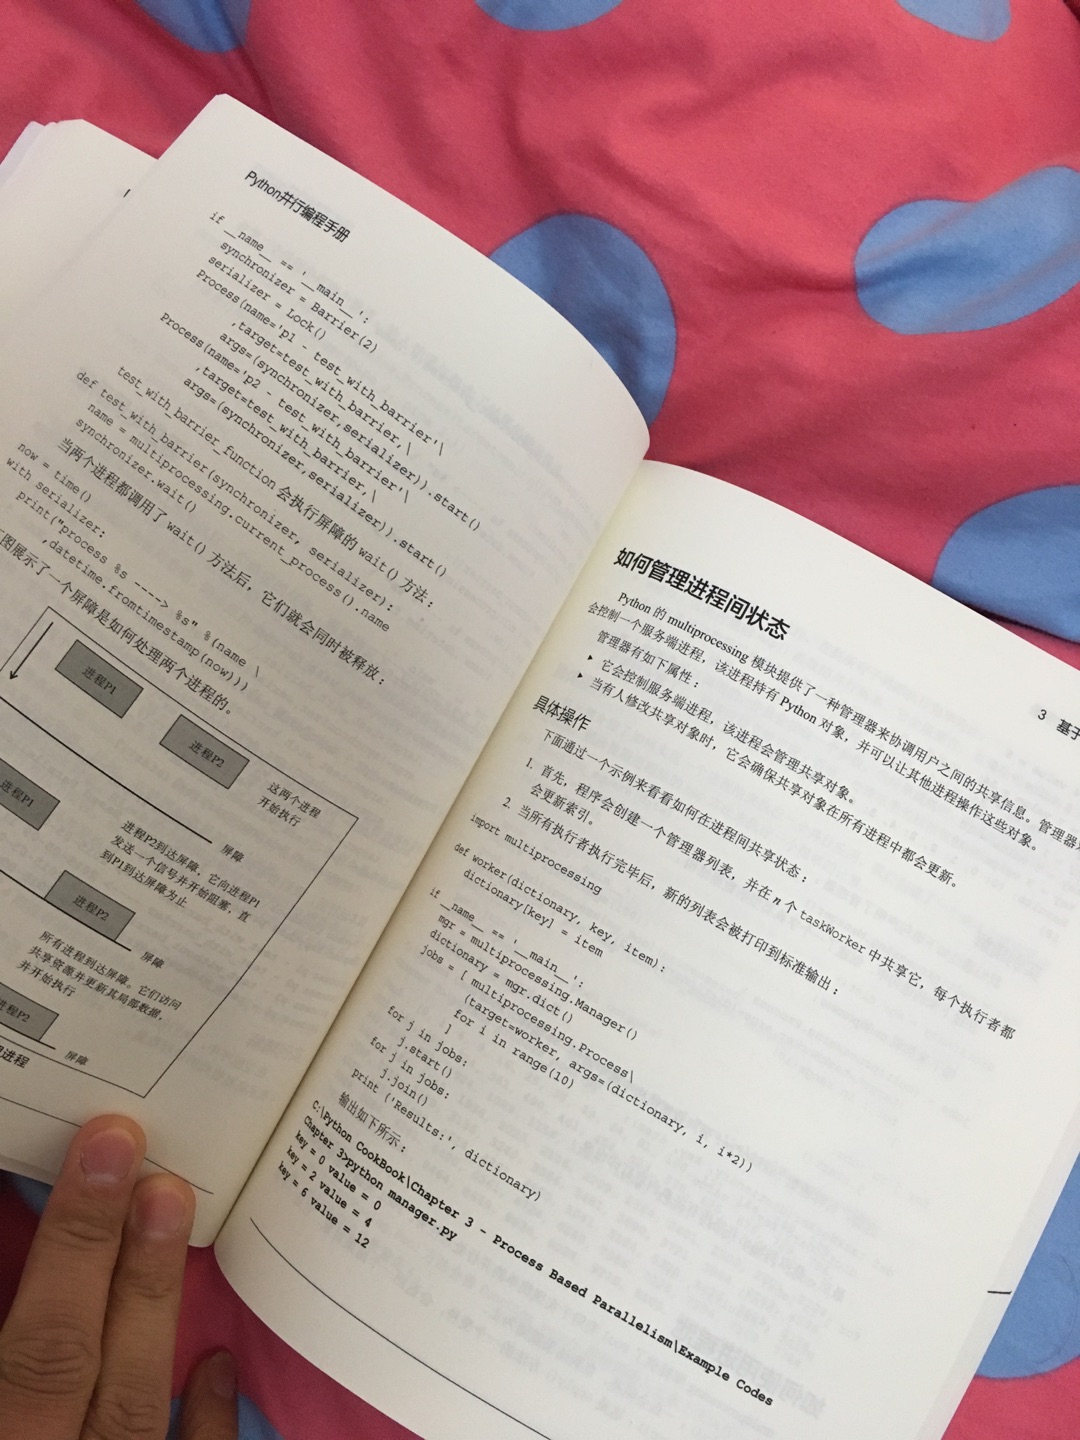 Python并行编程手册
if __name__ == '__main__':
synchronizer = Barrier(2)
serializer = Lock()
Process(name='p1 - test_with_barrier'\
,target=test_with_barrier,\
args=(synchronizer,serializer)).start()
Process(name='p2 - test_with_barrier'\
,target=test_with_barrier,\
args=(synchronizer,serializer)).start()
test_with_barrier_function 会执行屏障的 wait() 方法：
def test_with_barrier(synchronizer, serializer):
name = multiprocessing.current_process().name
synchronizer.wait()
当两个进程都调用了 wait() 方法后，它们就会同时被释放：
now = time()
with serializer:
print("process %s ----> %s" %(name \
,datetime.fromtimestamp(now)))
图展示了一个屏障是如何处理两个进程的。
进程P1
进程P2
这两个进程
开始执行
进程P1
屏障
进程P2到达屏障，它向进程P1
发送一个信号并开始阻塞，直
到P1到达屏障为止
进程P2
屏障
所有进程到达屏障。它们访问
共享资源并更新其局部数据，
并开始执行
进程P2
屏障
进程
3 基于
如何管理进程间状态
Python 的 multiprocessing 模块提供了一种管理器来协调用户之间的共享信息。管理器
会控制一个服务端进程，该进程持有 Python 对象，并可以让其他进程操作这些对象。
管理器有如下属性：
▸ 它会控制服务端进程，该进程会管理共享对象。
▸ 当有人修改共享对象时，它会确保共享对象在所有进程中都会更新。
具体操作
下面通过一个示例来看看如何在进程间共享状态：
1. 首先，程序会创建一个管理器列表，并在 n 个 taskWorker 中共享它，每个执行者都
会更新索引。
2. 当所有执行者执行完毕后，新的列表会被打印到标准输出：
import multiprocessing
def worker(dictionary, key, item):
dictionary[key] = item
if __name__ == '__main__':
mgr = multiprocessing.Manager()
dictionary = mgr.dict()
jobs = [ multiprocessing.Process\
(target=worker, args=(dictionary, i, i*2))
for i in range(10)
]
for j in jobs:
j.start()
for j in jobs:
j.join()
print ('Results:', dictionary)
输出如下所示：
C:\Python CookBook\Chapter 3 - Process Based Parallelism\Example Codes
Chapter 3>python manager.py
key = 0 value = 0
key = 2 value = 4
key = 6 value = 12